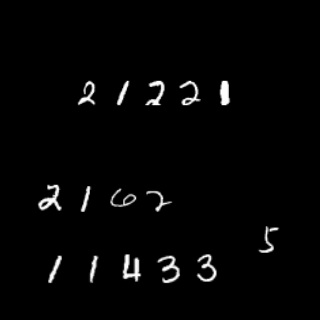 21221
2162
5
11433